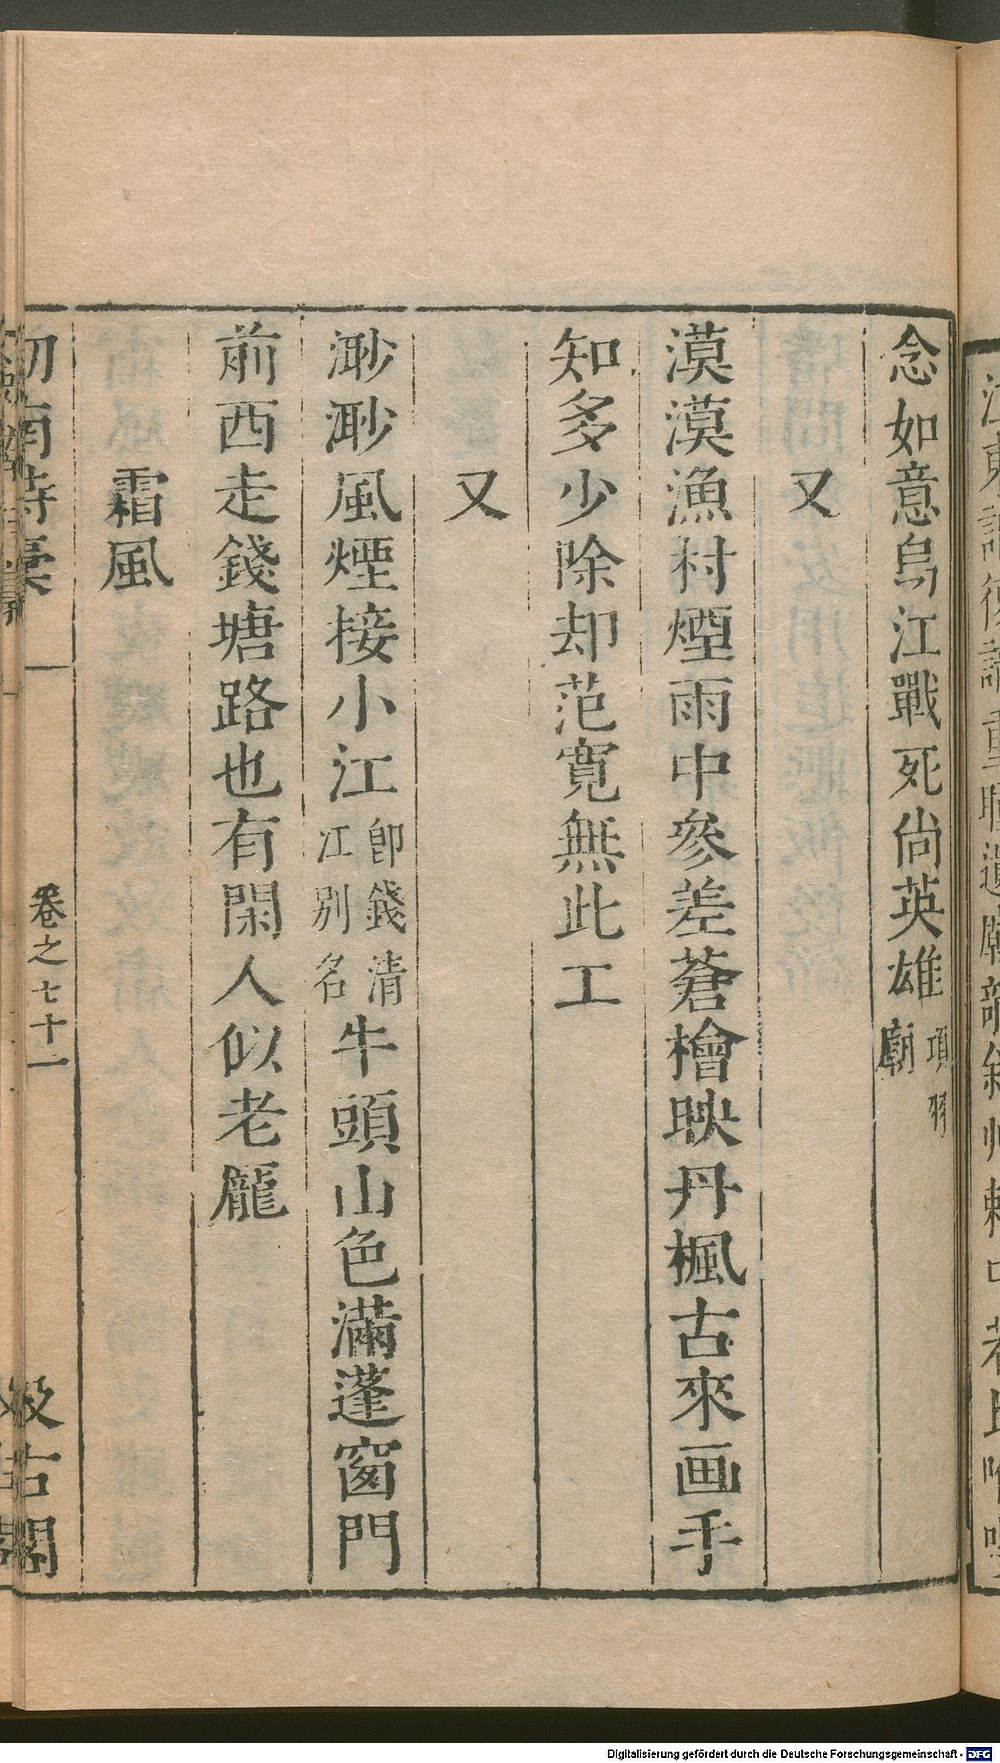 念如意烏江戰死尙英雄項羽廟
又
漠漠漁村煙雨中參差蒼檜映丹楓古來画手
知多少除却范寬無此工
又
渺渺風煙接小江卽錢清江別名牛頭山色滿蓬窗門
前西走錢塘路也有閑人似老龐
霜風
劍南詩稾
卷之七十一
汲古閣
Digitalisierung gefördert durch die Deutsche Forschungsgemeinschaft - DFG